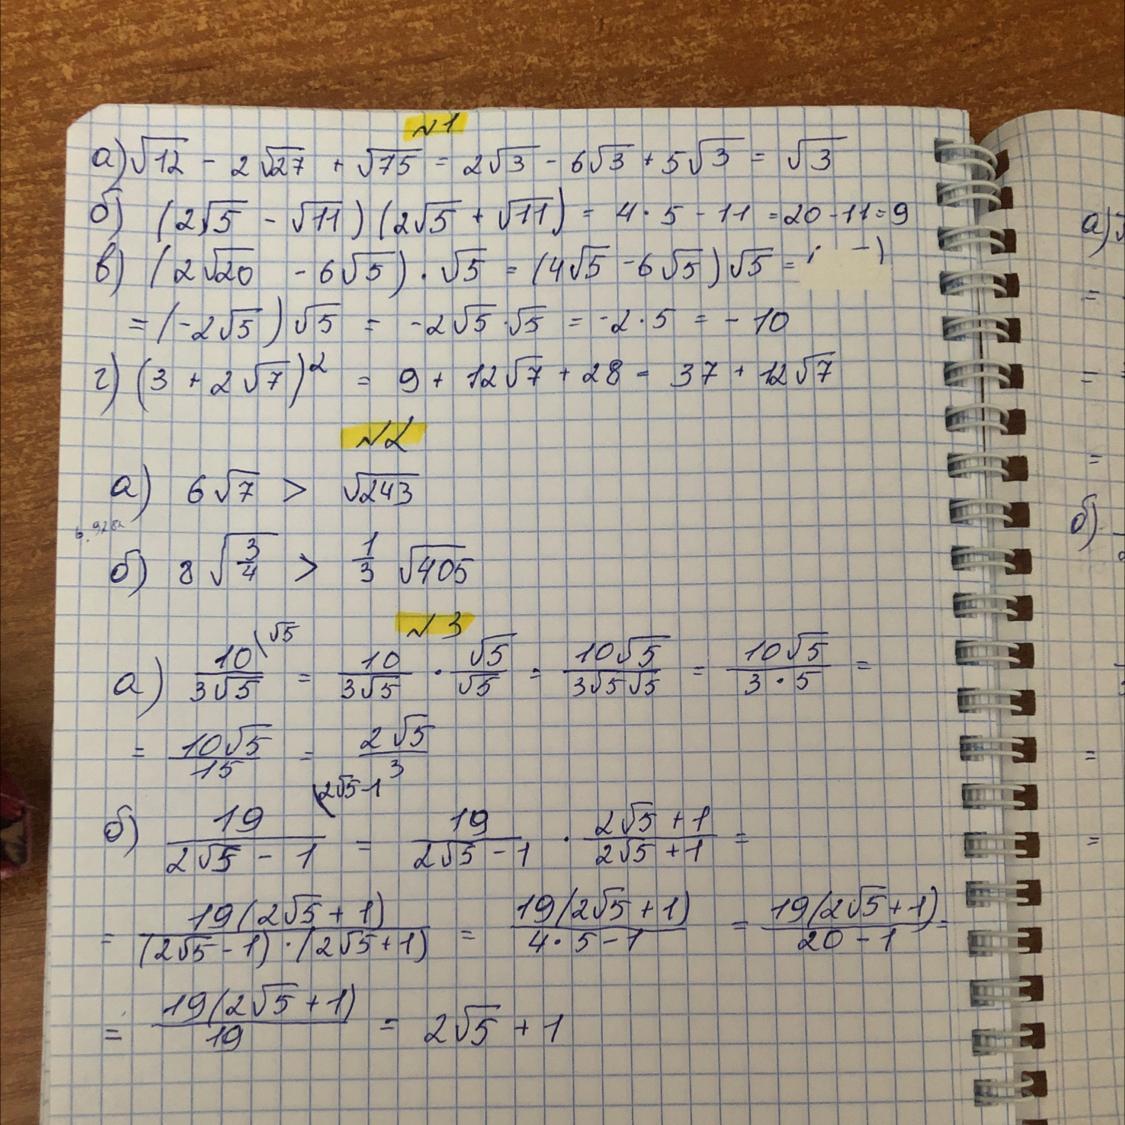 №1
а) √12 - 2√27 + √75 = 2√3 - 6√3 + 5√3 = √3
б) (2√5 - √11)(2√5 + √11) = 4·5 - 11 = 20 - 11 = 9
в) (2√20 - 6√5)·√5 = (4√5 - 6√5)√5 =
= (-2√5)√5 = -2√5·√5 = -2·5 = -10
г) (3 + 2√7)² = 9 + 12√7 + 28 = 37 + 12√7
№2
а) 6√7 > √243
б) 8√(3/4) > 1/3 √405
№3
а) 10/(3√5) \√5 = 10/(3√5) · √5/√5 = 10√5/(3√5√5) = 10√5/(3·5) =
= 10√5/15 = 2√5/3
б) 19/(2√5 - 1) \2√5-1 = 19/(2√5 - 1) · (2√5 + 1)/(2√5 + 1) =
= 19(2√5 + 1)/((2√5 - 1)·(2√5 + 1)) = 19(2√5 + 1)/(4·5 - 1) = 19(2√5 + 1)/(20 - 1) =
= 19(2√5 + 1)/19 = 2√5 + 1
а)
=
=
=
б)
=
=